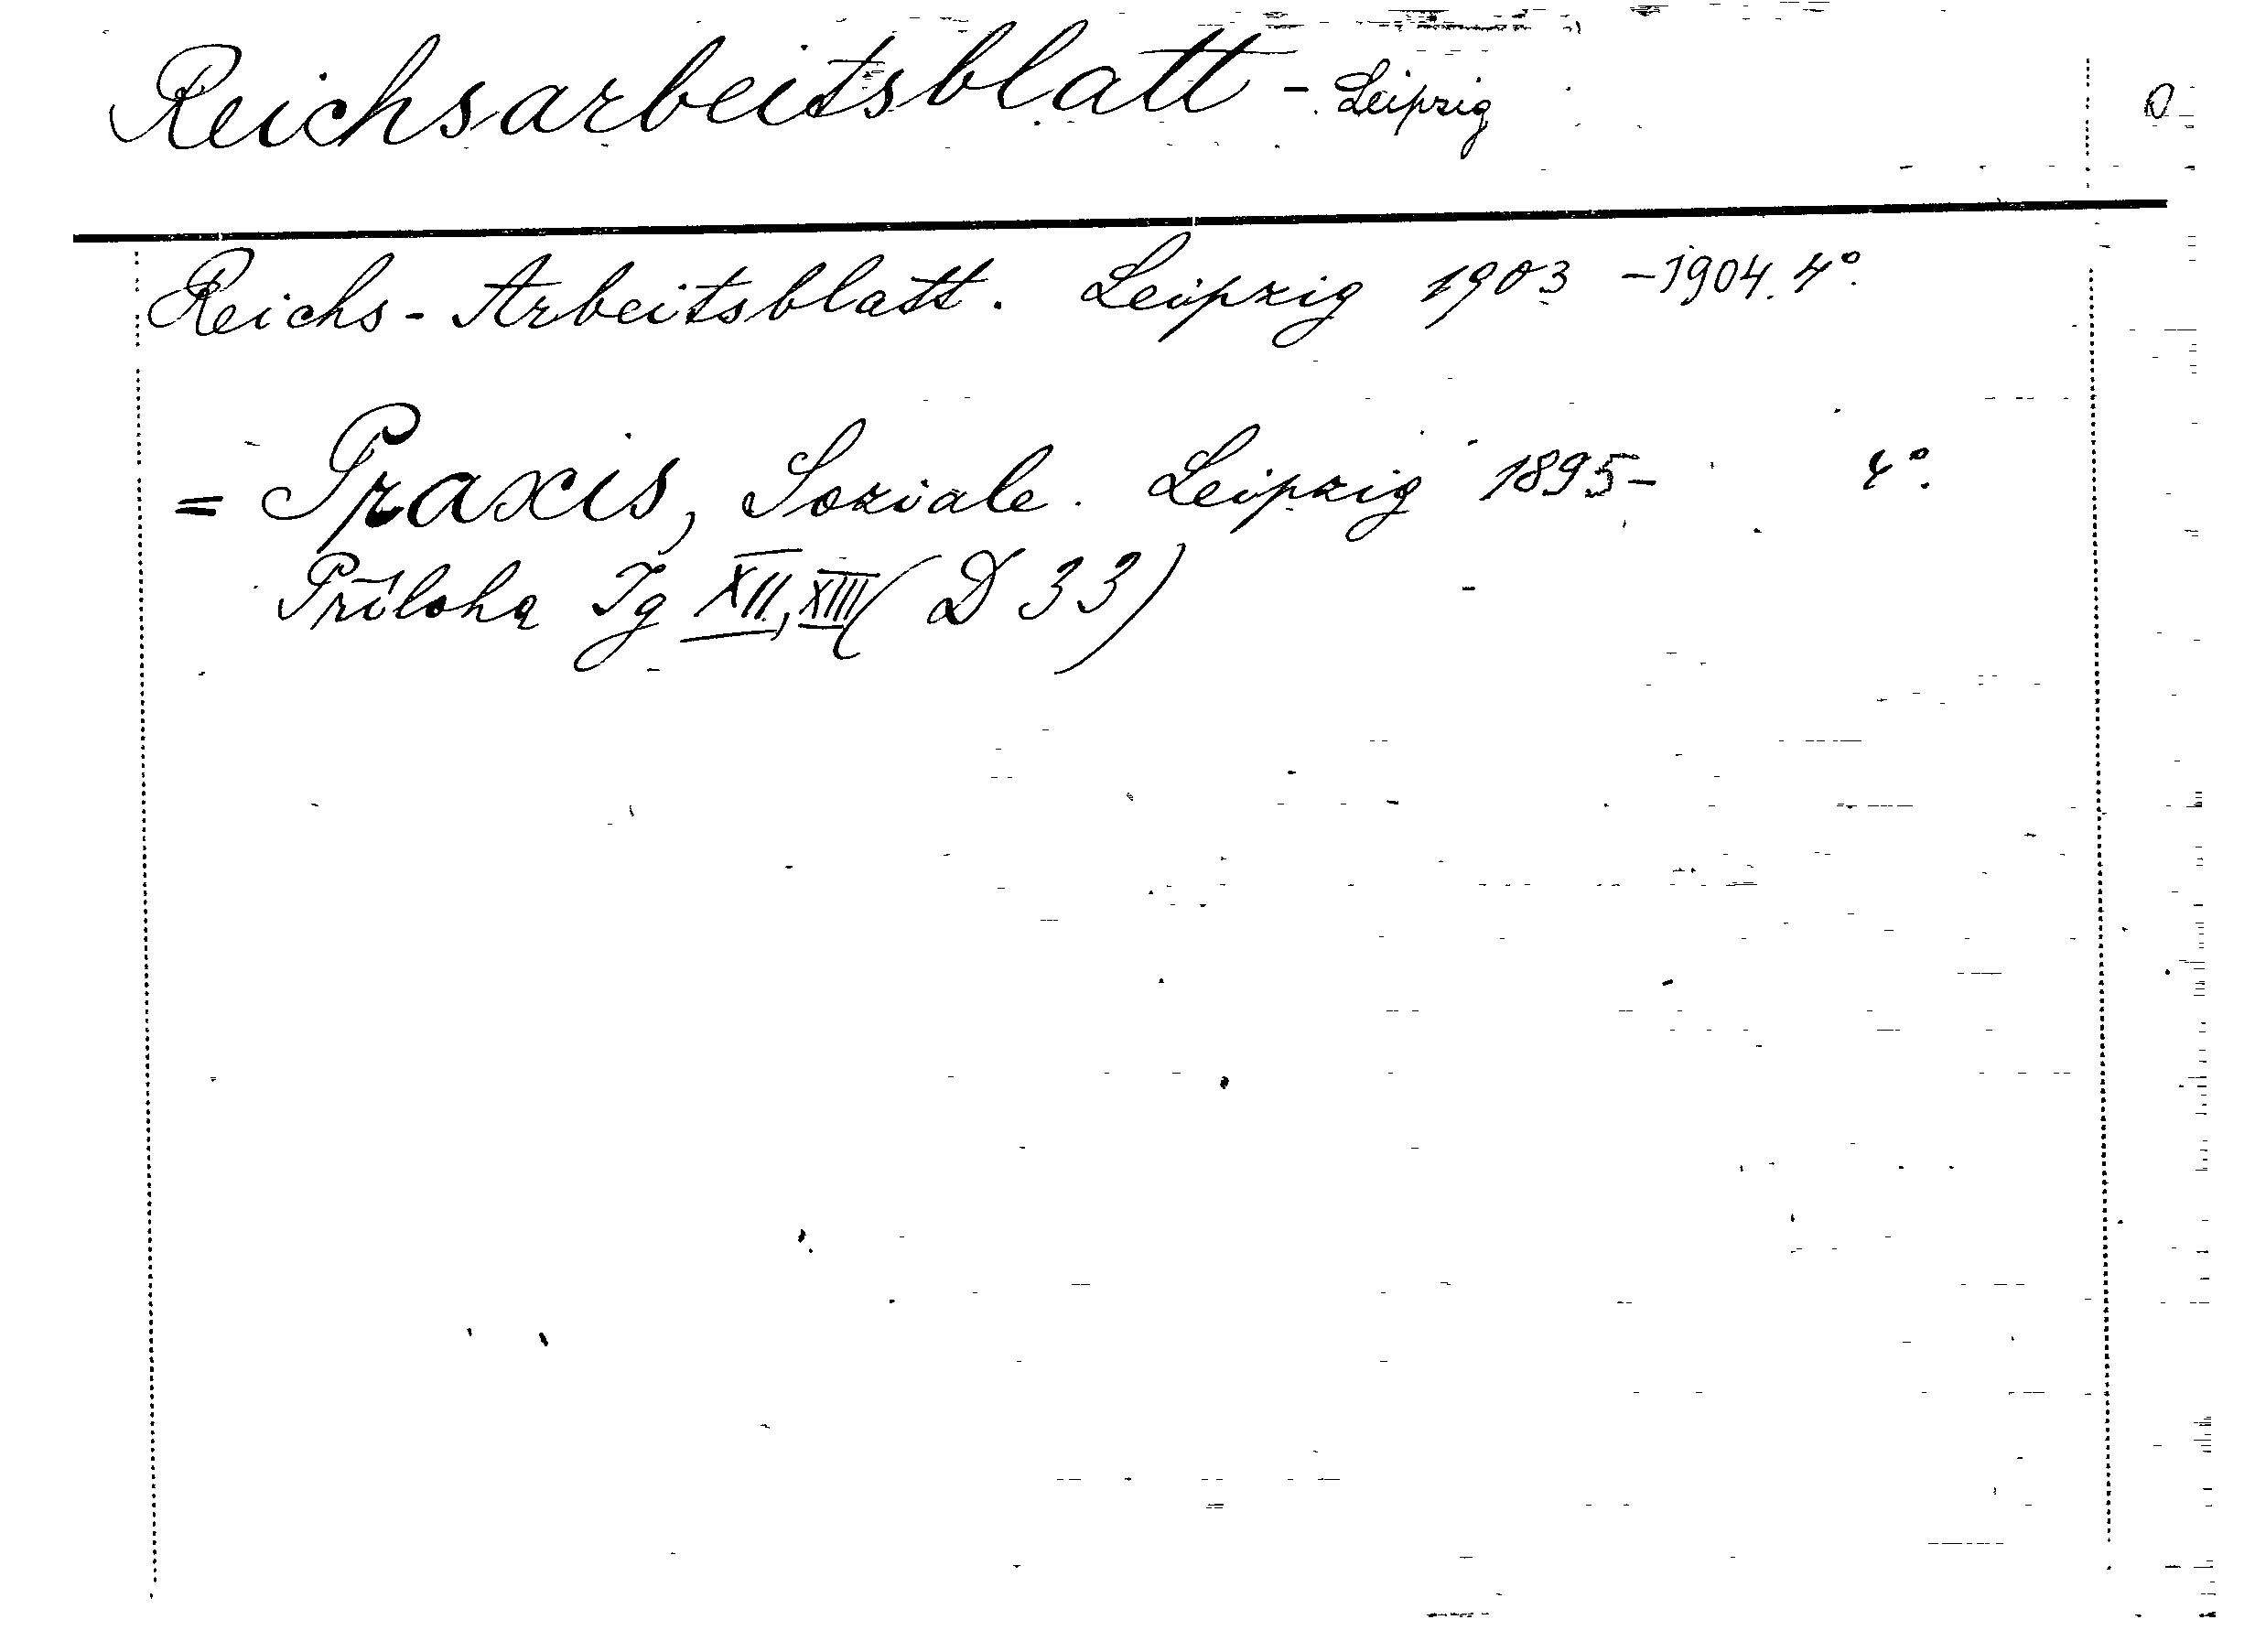 Reichsarbeitsblatt - Leipzig D
Reichs-Arbeitsblatt. Leipzig 1903 -1904. 4°.
= Praxis, Soziale. Leipzig 1895- 4°.
Příloha Jg XII, XIII (D 33)